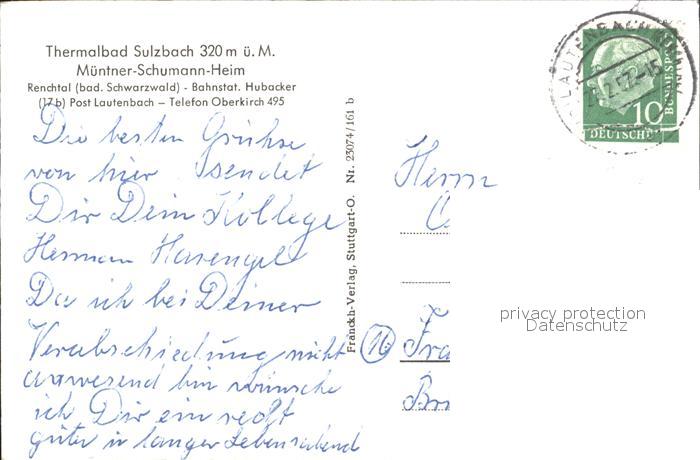 Thermalbad Sulzbach 320 m ü. M.
Müntner-Schumann-Heim
Renchtal (bad. Schwarzwald) - Bahnstat. Hubacker
(17b) Post Lautenbach – Telefon Oberkirch 495
Die besten Grühse
von hier sendet
Dir Dein Kollege
Hermann Harengel
Da ich bei Deiner
Verabschiedung nicht
anwesend bin wünsche
ich Dir ein recht
guten u langer Lebensabend
Franckh-Verlag, Stuttgart-O. Nr. 23074/161 b
Herrn
(16) Fra
LAUTENBACH
10
DEUTSCHE
BUNDESPOST
privacy protection
Datenschutz